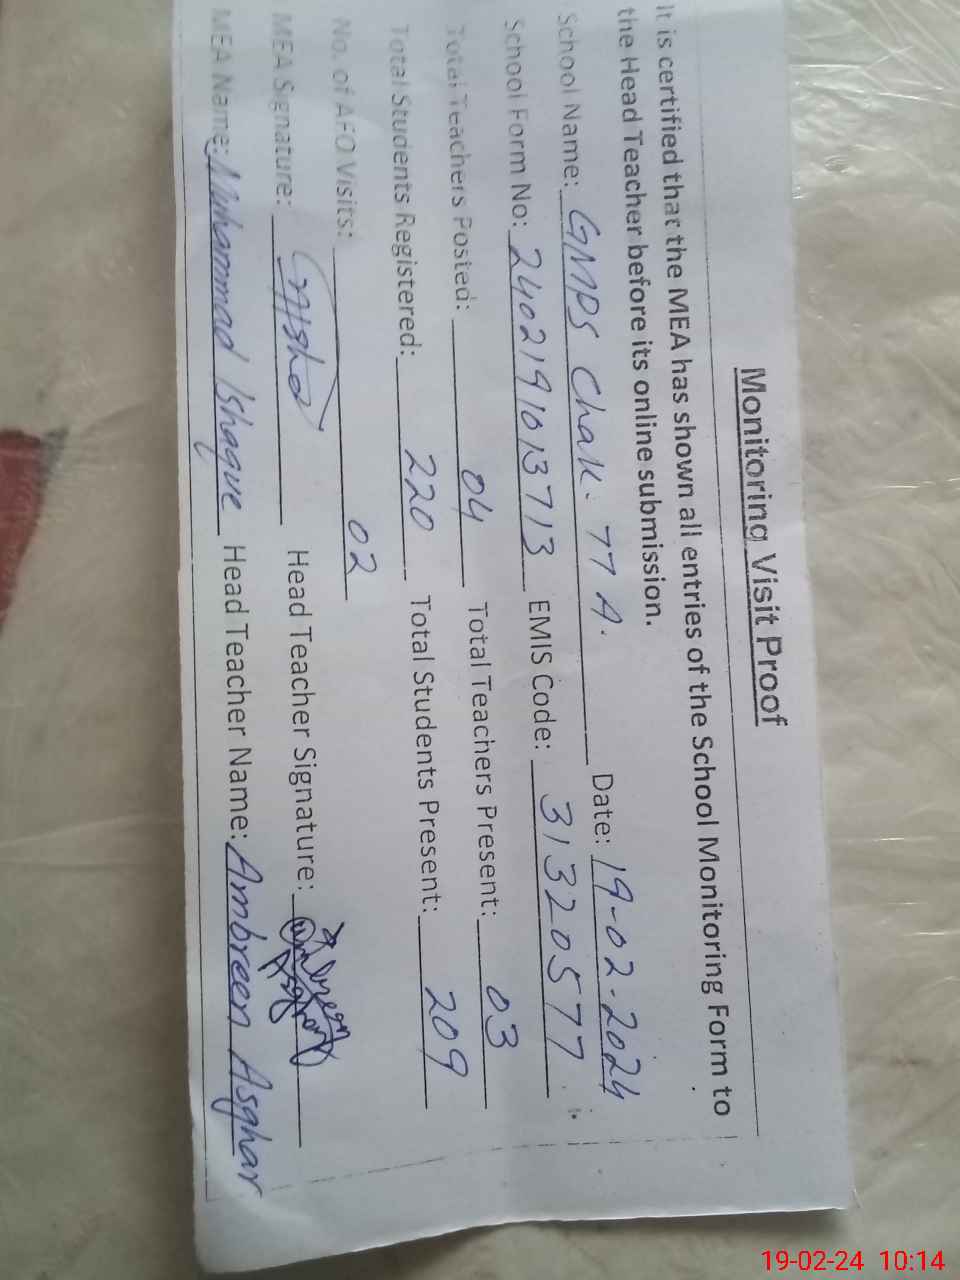 Monitoring Visit Proof
It is certified that the MEA has shown all entries of the School Monitoring Form to
the Head Teacher before its online submission.
School Name: GMPS Chak. 77 A. Date: 19-02-2024
School Form No: 2402191013713 EMIS Code: 31320577
Total Teachers Posted: 04 Total Teachers Present: 03
Total Students Registered: 220 Total Students Present: 209
No. of AFO Visits: 02
MEA Signature: Head Teacher Signature:
MEA Name: Muhammad Ishaque Head Teacher Name: Ambreen Asghar
19-02-24 10:14